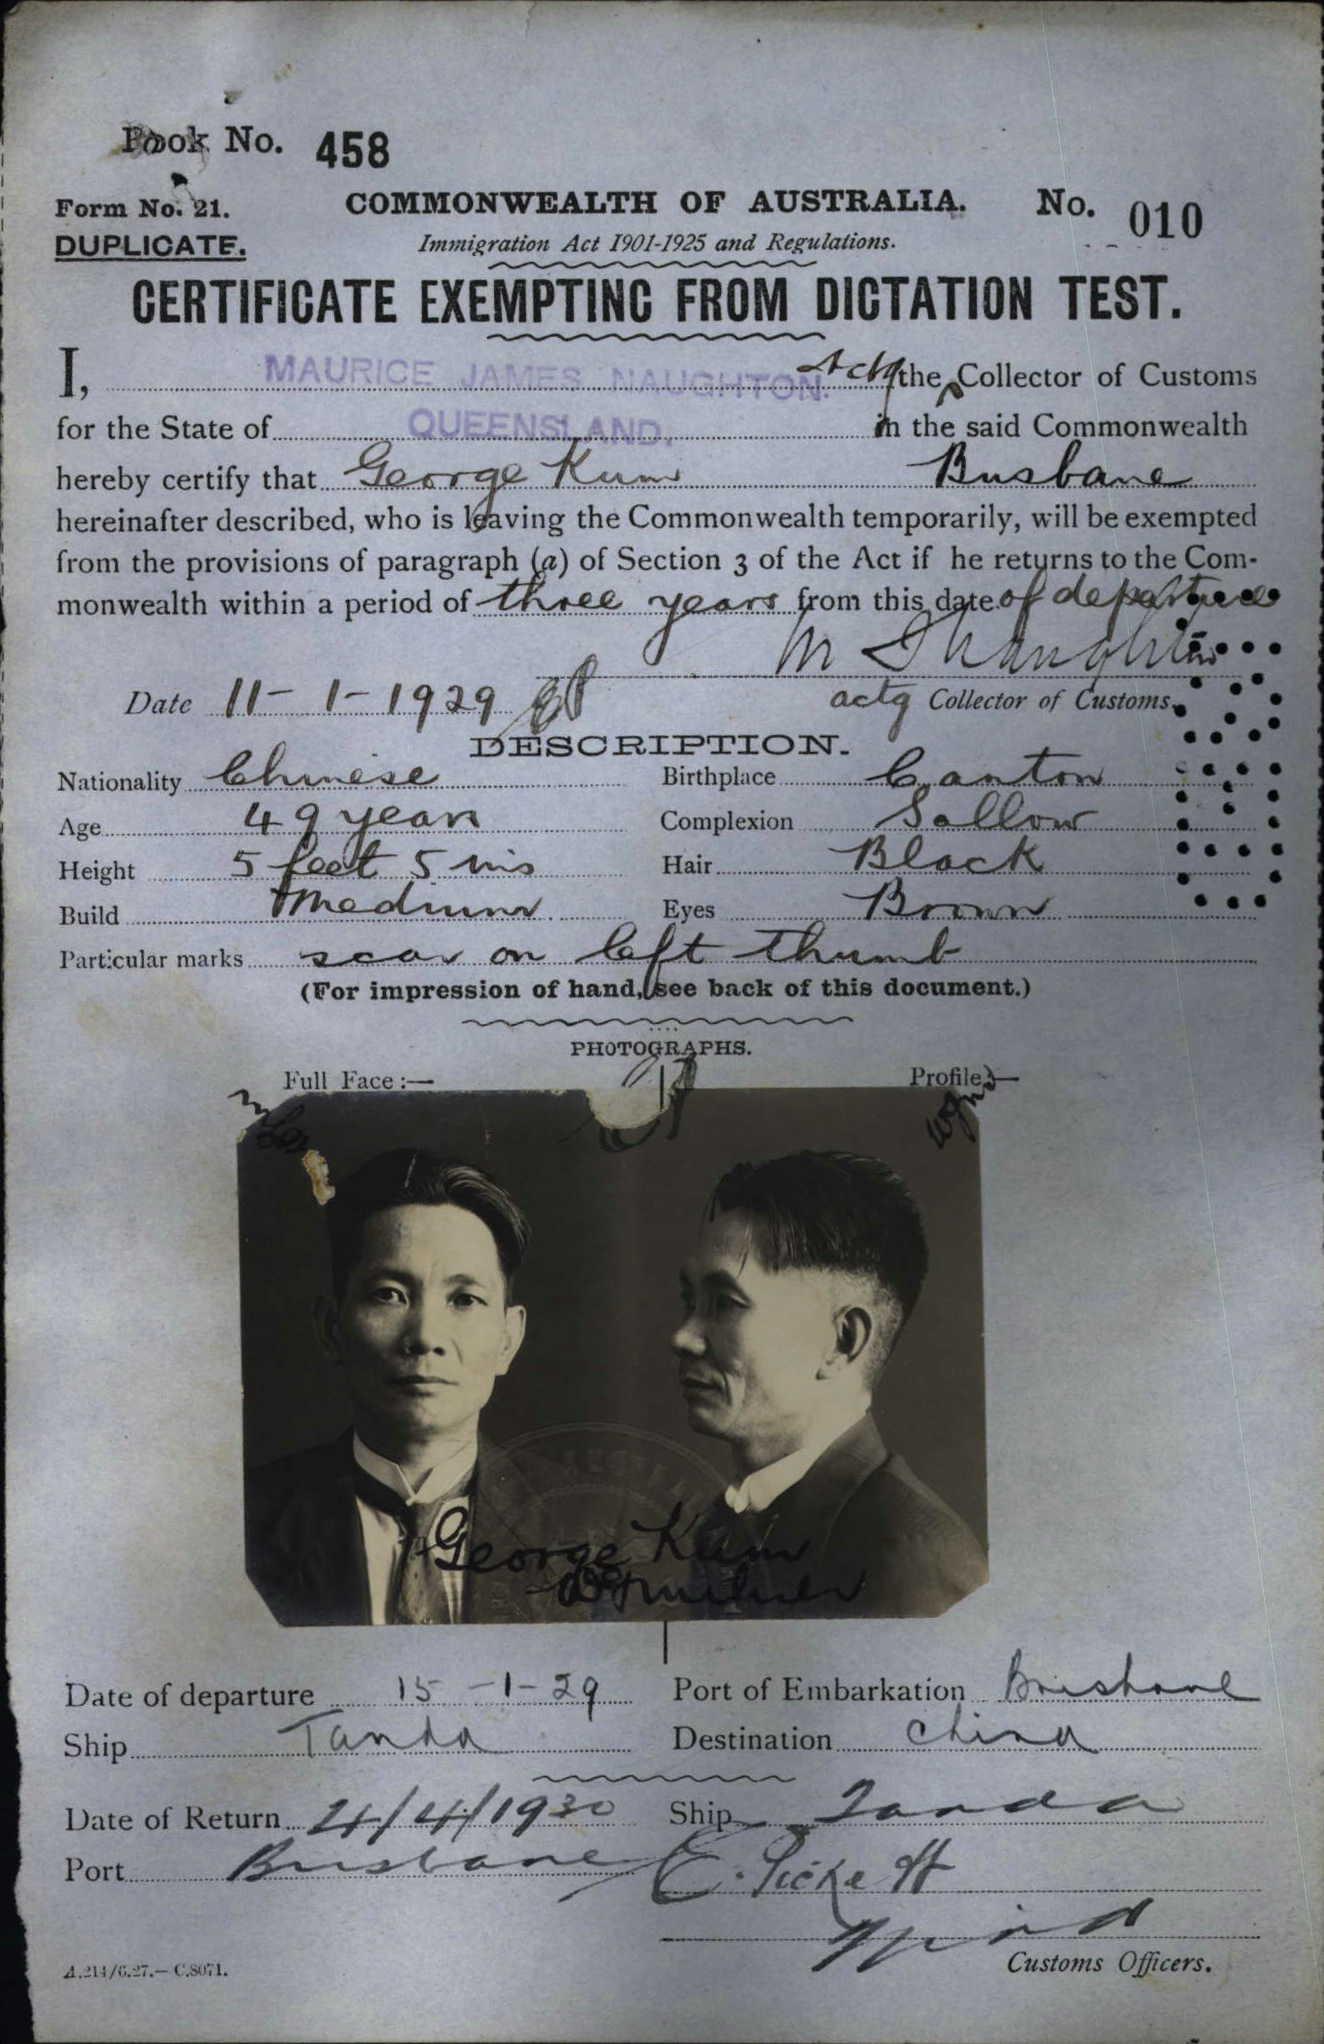 Book No. 458
Form No. 21. COMMONWEALTH OF AUSTRALIA. No. 010
DUPLICATE. Immigration Act 1901-1925 and Regulations.
CERTIFICATE EXEMPTING FROM DICTATION TEST.
I, MAURICE JAMES NAUGHTON. the Actg Collector of Customs
for the State of QUEENSLAND. in the said Commonwealth
hereby certify that George Kum Brisbane
hereinafter described, who is leaving the Commonwealth temporarily, will be exempted
from the provisions of paragraph (a) of Section 3 of the Act if he returns to the Com-
monwealth within a period of three years from this date of departure
M J Naughton
Date 11-1-1929 actg Collector of Customs.
DESCRIPTION.
Nationality Chinese Birthplace Canton
Age 49 years Complexion Sallow
Height 5 feet 5 ins Hair Black
Build Medium Eyes Brown
Particular marks scar on left thumb
(For impression of hand, see back of this document.)
PHOTOGRAPHS.
Full Face:— Profile:—
George Kum
Date of departure 15-1-29 Port of Embarkation Brisbane
Ship Tanda Destination China
Date of Return 4/4/1930 Ship Tanda
Port Brisbane
Customs Officers.
A.214/6.27.—C.8071.